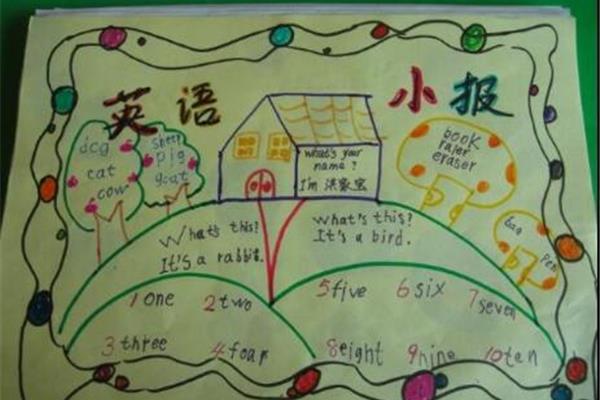 英语 小报
dcg
cat
cow
sheep
pig
goat
what's your
name?
I'm 洪
book
ruler
eraser
bag
pen
What's this?
It's a rabbit.
What's this?
It's a bird.
1 one
2 two
3 three
4 foar
5 five
6 six
7 seven
8 eight
9 nine
10 ten